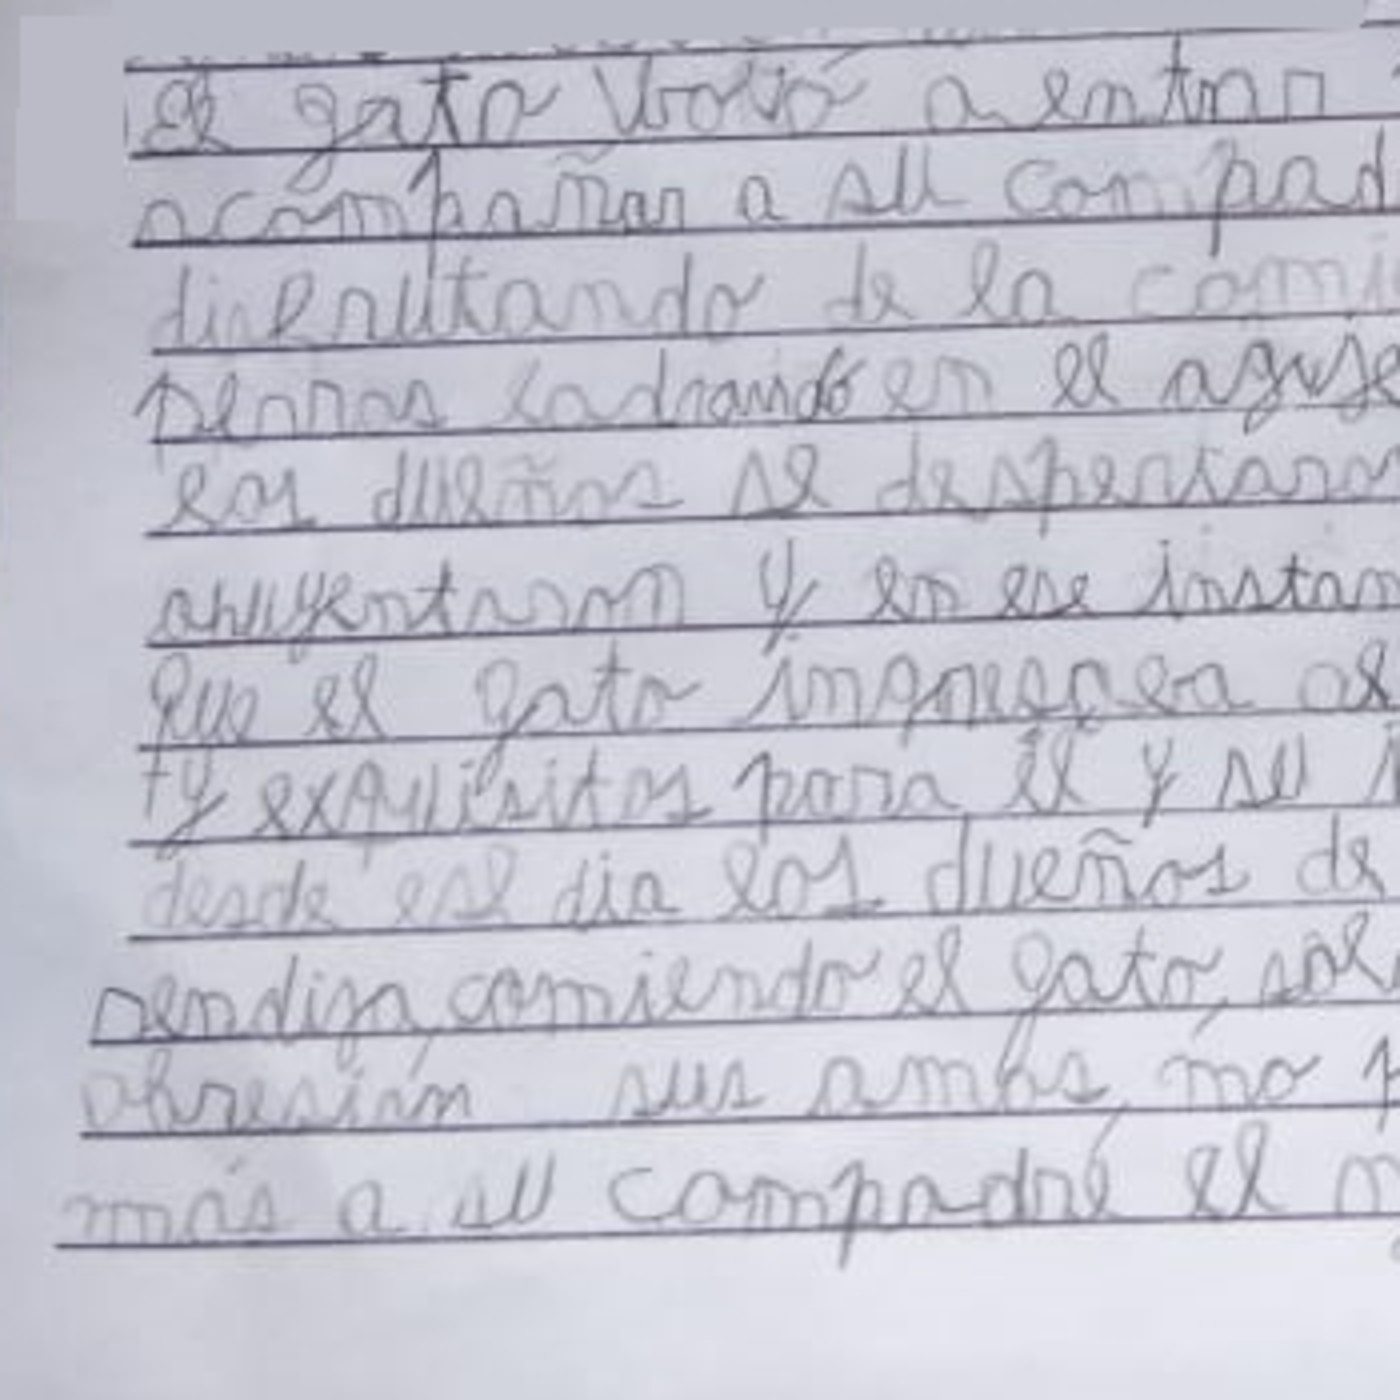 El gato volvió a entrar
acompañar a su compad
disfrutando de la comi
perros ladrando en el aguje
los dueños se despertaron
ahuyentaron y en ese instan
que el gato ingresara al
y exquisitos para él y su
desde ese dia los dueños de
comiendo el gato, sol
sus amos, no p
más a su compadre el